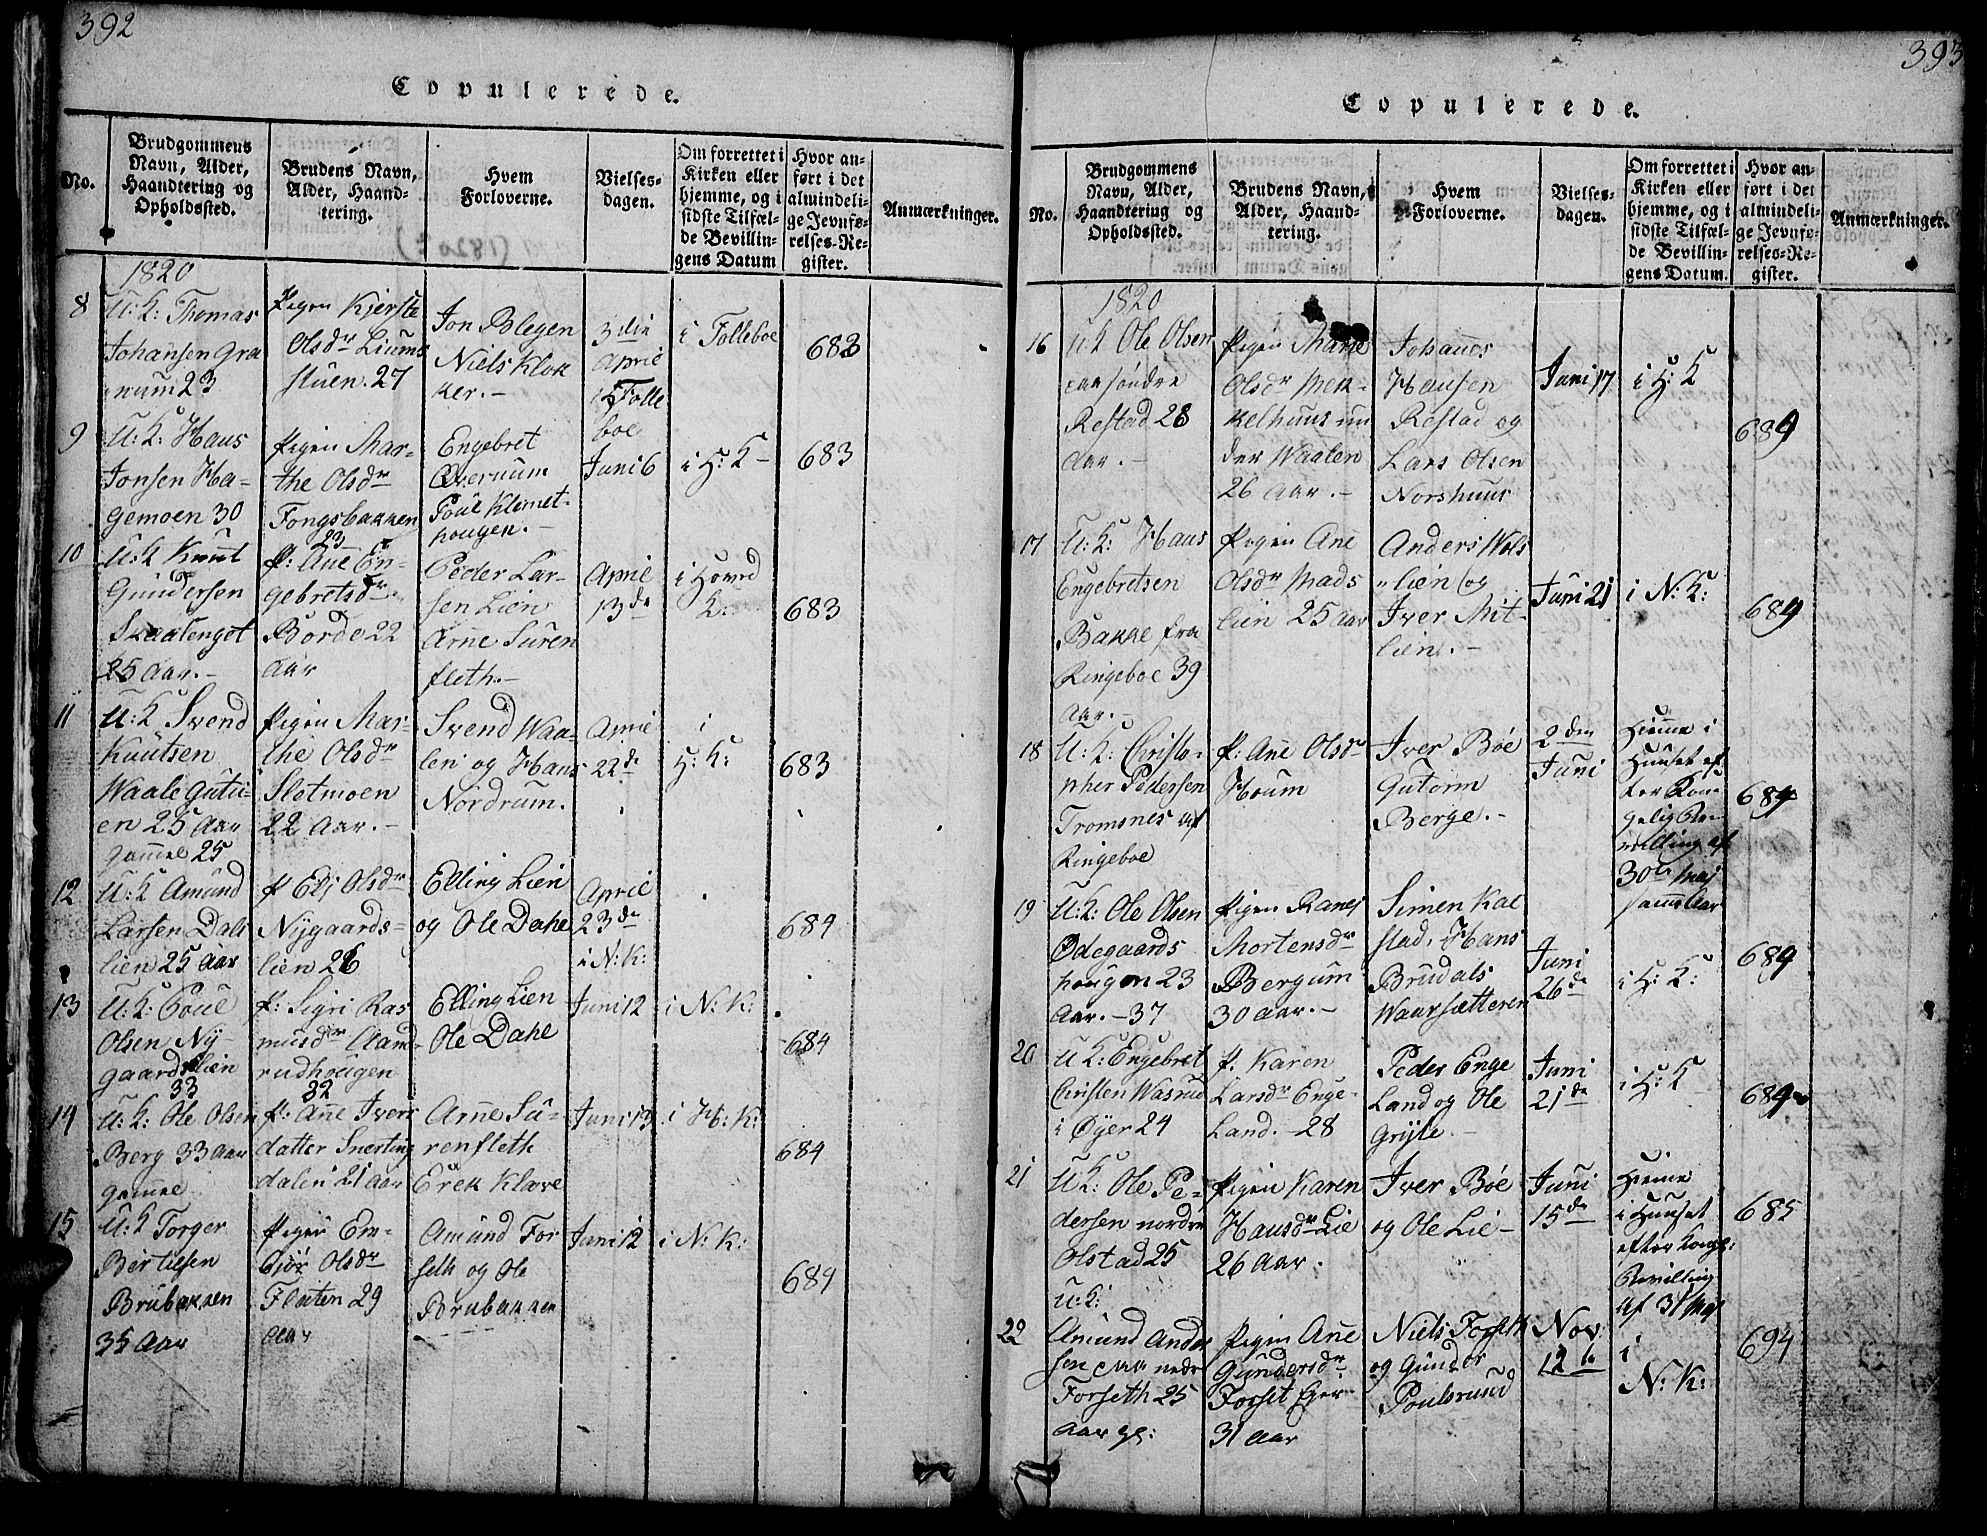 392
Copulerede.
No.
Brudgommens
Navn, Alder,
Haandtering og
Opholdssted.
Brudens Navn,
Alder, Haand-
tering.
Hvem
Forloverne.
Vielses-
dagen.
Om forrettet i
Kirken eller
hjemme, og i
sidste Tilfæl-
de Bevillin-
gens Datum
Hvor an-
ført i det
almindeli-
ge Jevnfø-
relses-Re-
gister.
Anmærkninger.
1820
8
U: K: Thomas
Johansen Gra
num 23
Pigen Kierste
Olsdr Liums
stuen. 27
Jon Polegen
Niels Klok
ker. -
3die
April
i Folle
boe
i Folleboe
683
9
U: K: Hans
Jonsen Ha-
gemoen 30
Pigen Mar-
the Olsdr
Fongsbakken
23
Engebret
Øvernum
Poul Klemet-
hougen. -
Juni 6
i H: K -
683
10
U: K Knut
Gundersen
Skaalenget
25 Aar. -
P: Ane En-
gebretsdr
Borde 22
Aar
Peder Lar-
sen Lien
Arne Suren
fleth. -
April
13de
i Hoved
K:
683
11
U: K Svend
Knutsen
Waale Gutu-
en 25 Aar
gammel 25
Pigen Mar-
the Olsdr
Slotmoen
22 Aar. -
Svend Waa-
len og Hans
Nordrum.
April
22de
i
H: K:
683
12
U: K Amund
Larsen Dals
lien 25 Aar
P Eli Olsdr
Nygaards-
lien 26
Elling Lien
og Ole Dahl
April
23de
i N: K:
684
13
U: K: Poul
Olsen Ny-
gaardslien
33
P: Sigri Ras
musdr Aam
rudhougen
32
Elling Lien
Ole Dahl
Juni 12
i N: K:
684
14
U: K: Ole Olsen
Berg 33 Aar
gammel
P: Anne Ivers
datter Snerting
dalen 21 Aar
Arne Su-
renfleth
Erek Klave
Juni 13
i H: K:
684
15
U: K Torger
Bertelsen
Brubakken
35 Aar
Pigen Em-
biør Olsdr
Flaten 29
Aar
Amund For
seth og Ole
Brubakken
Juni 12
i N: K:
684
393
Copulerede.
No.
Brudgommens
Navn, Alder,
Haandtering og
Opholdssted.
Brudens Navn,
Alder, Haand-
tering.
Hvem
Forloverne.
Vielses-
dagen.
Om forrettet i
Kirken eller
hjemme, og i
sidste Tilfæl-
de Bevillin-
gens Datum.
Hvor an-
ført i det
almindeli-
ge Jevnfø-
relses-Re-
gister.
Anmærkninger.
1820
16
U K Ole Olsen
paa søndre
Restad 28
Aar. -
Pigen Marie
Olsdr Mek-
kelhuus un
der Waalen
26 Aar. -
Johannes
Hansen
Restad og
Lars Olsen
Norshuus
Juni 17
i H: K
684
17
U: K: Hans
Engebretsen
Bakke fra
Ringeboe 39
Aar. -
Pigen Ane
Olsdr Mads
lien 25 Aar
Anders Wols
lien og
Iver Mit-
lien. -
Juni 21
i N: K:
684
18
U: K: Christo-
pher Pedersen
Tromsnes af
Ringeboe
P: Ane Olsdr
Houm
Iver Bøe
Gutorm
Berge. -
2den
Juni
Hiemme i
Huuset ef
ter Kon
gelig Be
villing af
30te Maj
samme Aar
684
19
U: K: Ole Olsen
Ødegaards
hougen 23
Aar. - 37
Pigen Ranej
Mortensdr
Bergum
30 Aar. -
Simen Kal
stad, Hans
Brudals
Waarsætteren
Juni
26de
i H: K:
689
20
U K: Engebret
Christen Wasrud
i Øyer 24
P. Karen
Larsdr Enge-
Land. - 28
Peder Enge
Land og Ole
Gryte. -
Juni
21de
i H: K
684
21
U: K: Ole Pe-
dersen nordre
Olstad 25
Pigen Karen
Hansdr Lie
26 Aar.
Iver Bøe
og Ole Lie -
Juni
15de
Hiemme
i Huuset
efter Kongl:
Bevilling
af 31 Maj
685
22
U: K:
Amund Ander
sen paa nedre
Forseth 25
Aar gl:
Pigen Ane
Gundersdr
Forset Eger
31 Aar
Niels Forseth
og Gunder
Poulsrud
Nov:
12te
i
N: K:
694